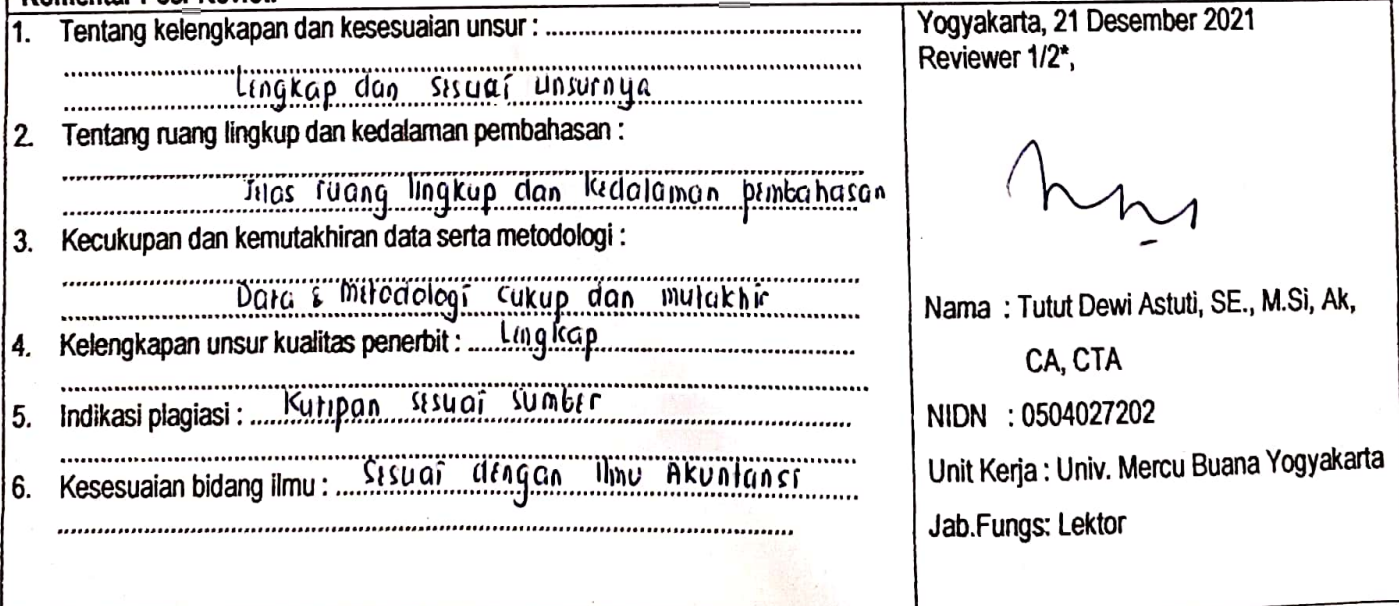 1. Tentang kelengkapan dan kesesuaian unsur : ..........
Lengkap dan sesuai unsurnya
2. Tentang ruang lingkup dan kedalaman pembahasan :
Jelas ruang lingkup dan kedalaman pembahasan
3. Kecukupan dan kemutakhiran data serta metodologi :
Data & Metodologi cukup dan mutakhir
4. Kelengkapan unsur kualitas penerbit : Lengkap
5. Indikasi plagiasi : Kutipan sesuai sumber
6. Kesesuaian bidang ilmu : Sesuai dengan Ilmu Akuntansi
Yogyakarta, 21 Desember 2021
Reviewer 1/2*,
Nama : Tutut Dewi Astuti, SE., M.Si, Ak,
CA, CTA
NIDN : 0504027202
Unit Kerja : Univ. Mercu Buana Yogyakarta
Jab.Fungs: Lektor